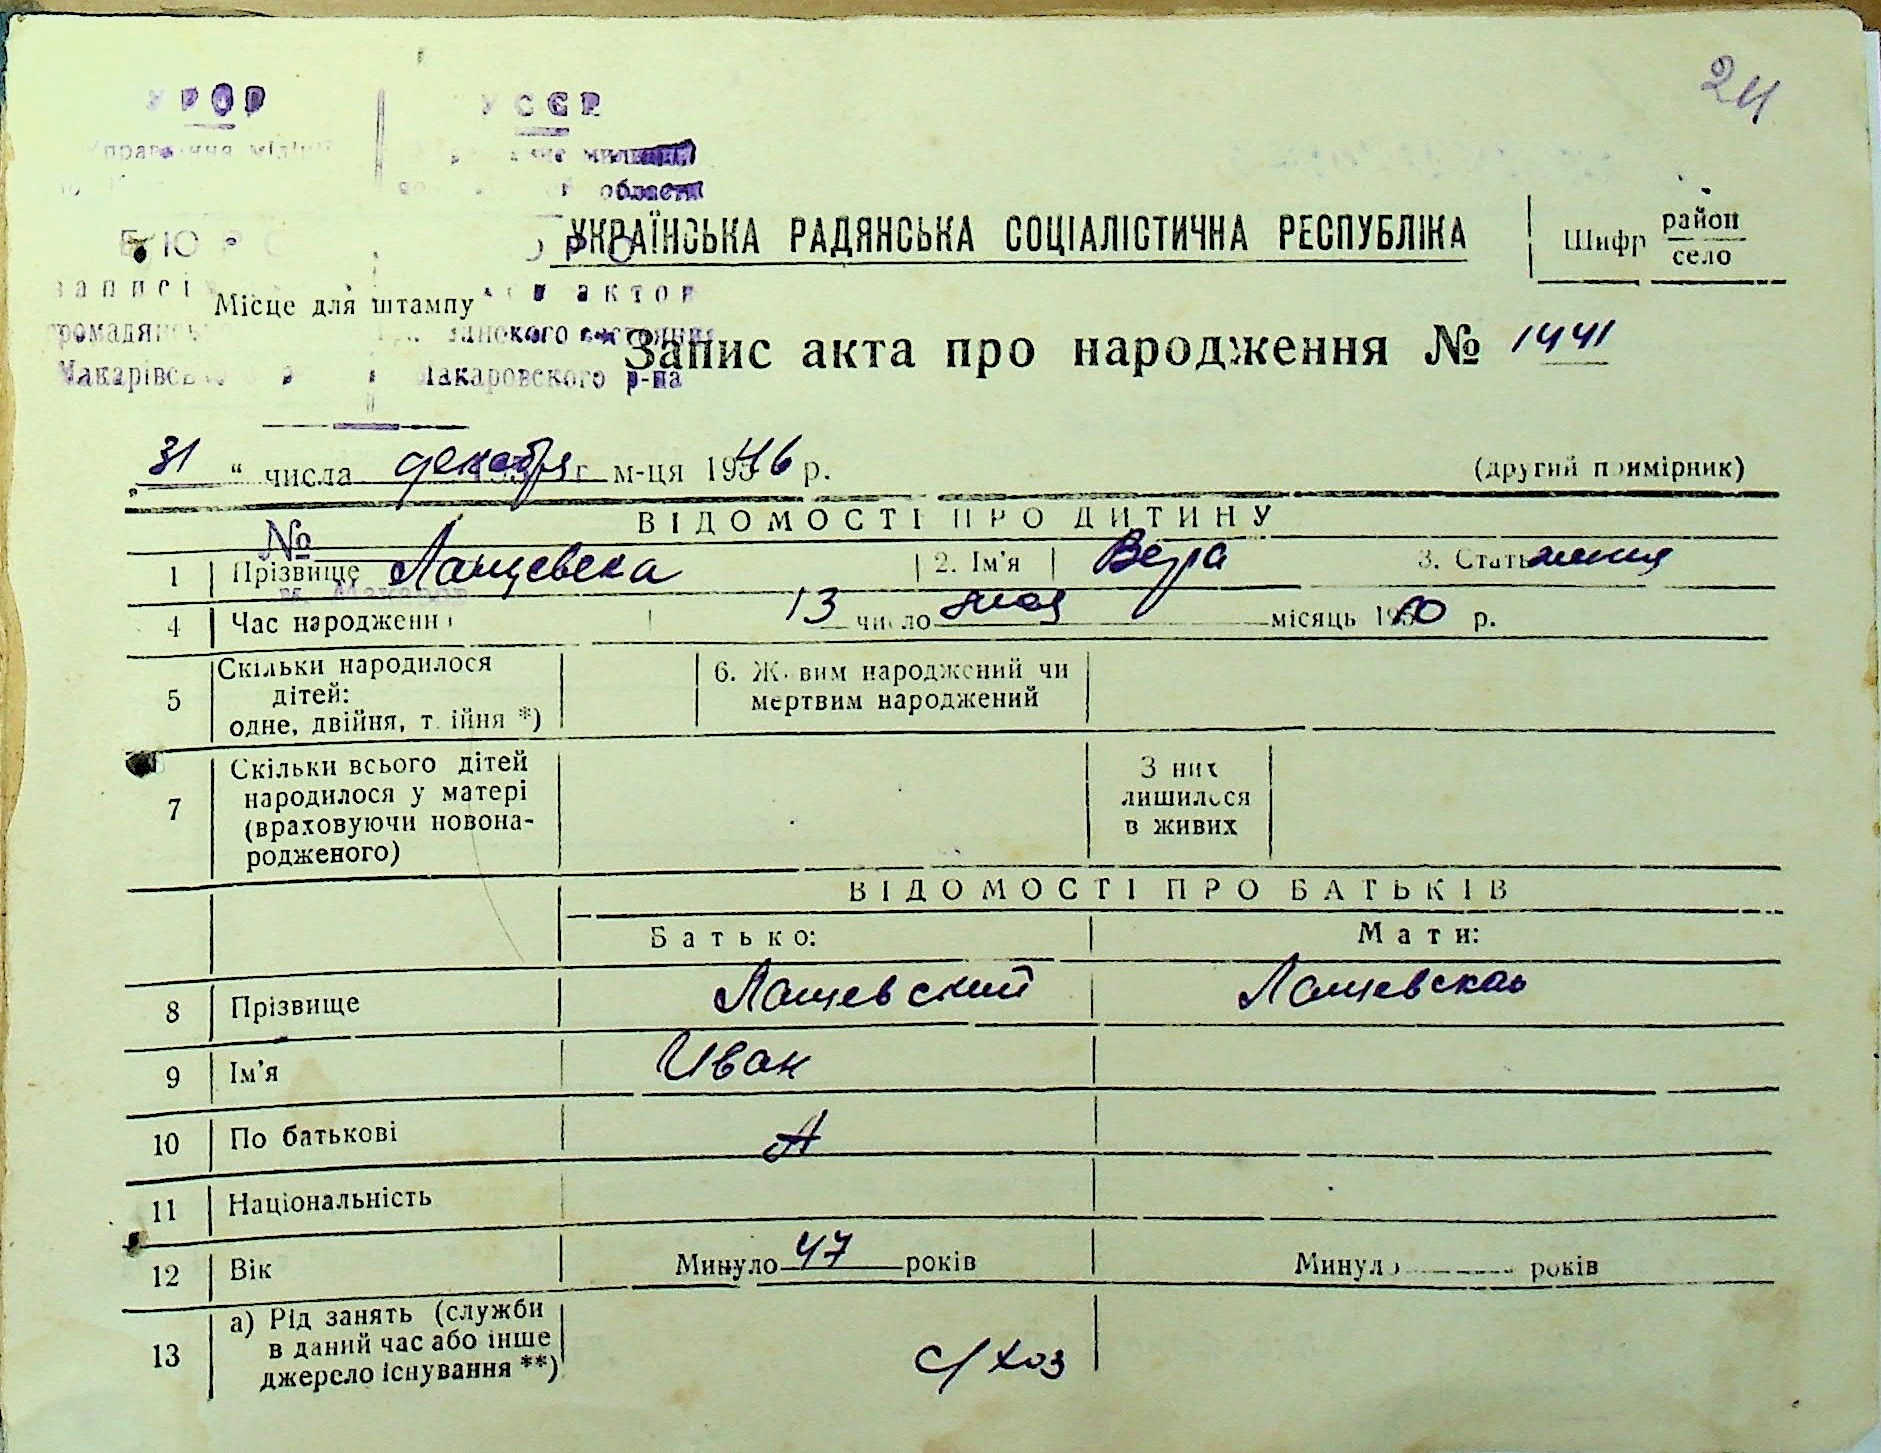 24
УРСР УССР
Управління міліції милиции
области
БЮРО
УКРАЇНСЬКА РАДЯНСЬКА СОЦІАЛІСТИЧНА РЕСПУБЛІКА
Шифр район
село
записів актов
Місце для штампу
громадянського гражданского состояния
Запис акта про народження № 1441
Макарівського Макаровского р-на
31 “ числа декабря м-ця 1946 р.
(другий примірник)
ВІДОМОСТІ ПРО ДИТИНУ
№
1 Прізвище Лащевска 2. Ім’я Вера 3. Стать женщ
м. Макаров
4 Час народження 13 число мая місяць 19 р.
5 Скільки народилося
дітей:
одне, двійня, трійня *)
6. Живим народжений чи
мертвим народжений
7 Скільки всього дітей
народилося у матері
(враховуючи новона-
родженого)
З них
лишилося
в живих
ВІДОМОСТІ ПРО БАТЬКІВ
Батько: Мати:
8 Прізвище Лащевский Лащевская
9 Ім’я Иван
10 По батькові А
11 Національність
12 Вік Минуло 47 років Минуло років
13 а) Рід занять (служби
в даний час або інше
джерело існування **)
с/хоз